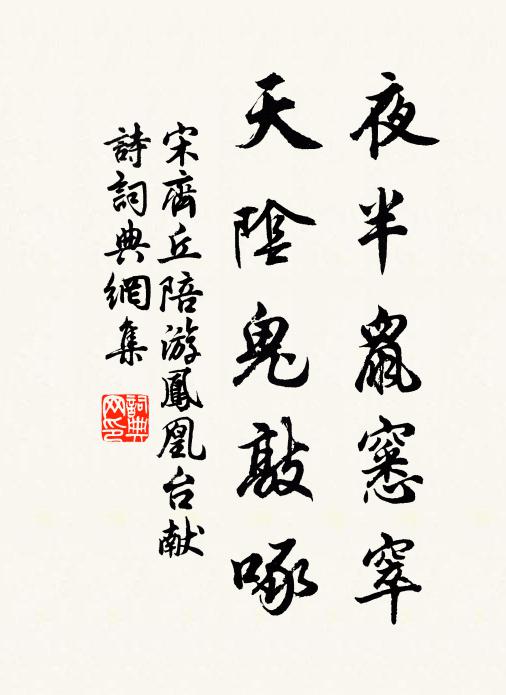 夜半鼠窸窣
天陰鬼敲啄
宋齊丘陪游鳳凰台献
詩詞典網集
詞典网印